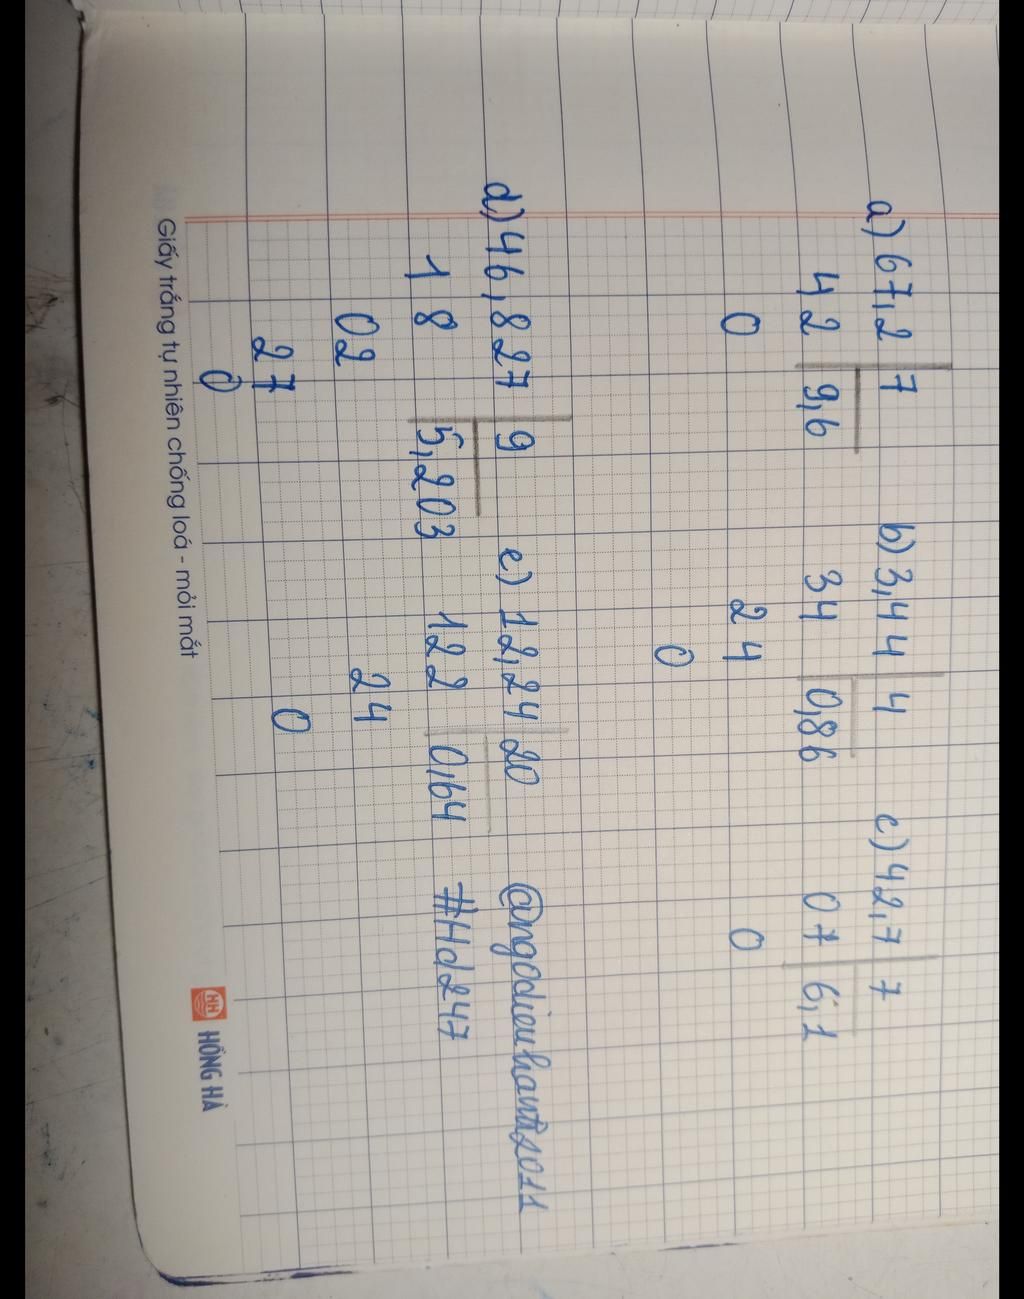 a) 67,2 7 b) 3,44 4 c) 42,7 7
4 2 9,6 34 0,86 0 7 6,1
0 24 0
0
d) 46,827 9 e) 12,24 20 @ngodieuhanti2011
1 8 5,203 122 0,64 #Hd247
02 24
27 0
0
Giấy trắng tự nhiên chống loá - mỏi mắt HH HỒNG HÀ